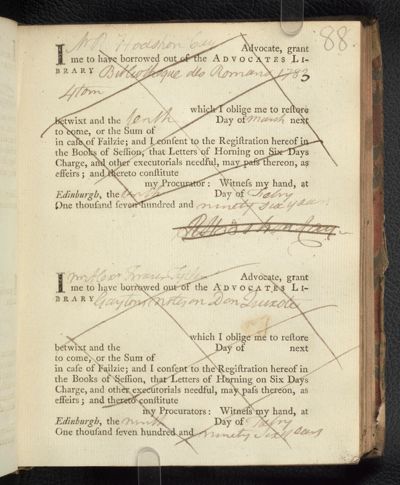 88.
I Mr R Hodshon Cay Advocate, grant
me to have borrowed out of the ADVOCATES LI-
BRARY Bibliotheque des Romans 1783
4 tom
which I oblige me to reſtore
betwixt and the tenth Day of March next
to come, or the Sum of
in caſe of Failzie; and I conſent to the Regiſtration hereof in
the Books of Seſſion, that Letters of Horning on Six Days
Charge, and other executorials needful, may paſs thereon, as
effeirs; and thereto conſtitute
my Procurator: Witneſs my hand, at
Edinburgh, the tenth Day of Febry
One thouſand ſeven hundred and ninety six years.
R Hodshon Cay
I Advocate, grant
me to have borrowed out of the ADVOCATES LI-
BRARY Gaytons notes on Don Quixote
which I oblige me to reſtore
betwixt and the Day of next
to come, or the Sum of
in caſe of Failzie; and I conſent to the Regiſtration hereof in
the Books of Seſſion, that Letters of Horning on Six Days
Charge, and other executorials needful, may paſs thereon, as
effeirs; and thereto conſtitute
my Procurators: Witneſs my hand, at
Edinburgh, the ninth Day of Febry
One thouſand ſeven hundred and ninety six years